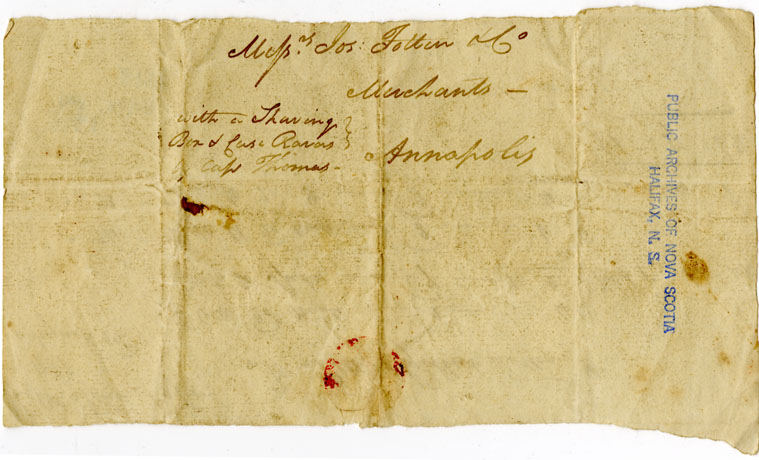 Mess.rs Jos: Totten & Co
Merchants —
Annapolis
with a Shaving
Box & Case Razors
Capt Thomas —
PUBLIC ARCHIVES OF NOVA SCOTIA
HALIFAX, N. S.